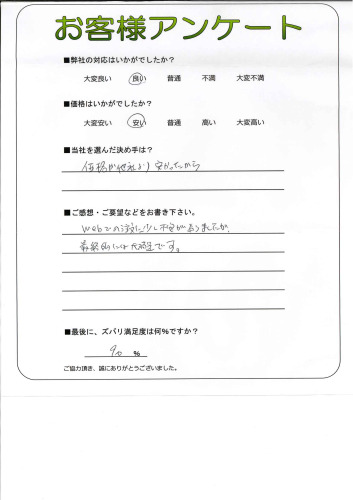 お客様アンケート
■弊社の対応はいかがでしたか？
大変良い 良い 普通 不満 大変不満
■価格はいかがでしたか？
大変安い 安い 普通 高い 大変高い
■当社を選んだ決め手は？
価格が他社より安かったから
■ご感想・ご要望などをお書き下さい。
Webでの注文に少し不安がありましたが、
最終的には大満足です。
■最後に、ズバリ満足度は何％ですか？
90 ％
ご協力頂き、誠にありがとうございました。